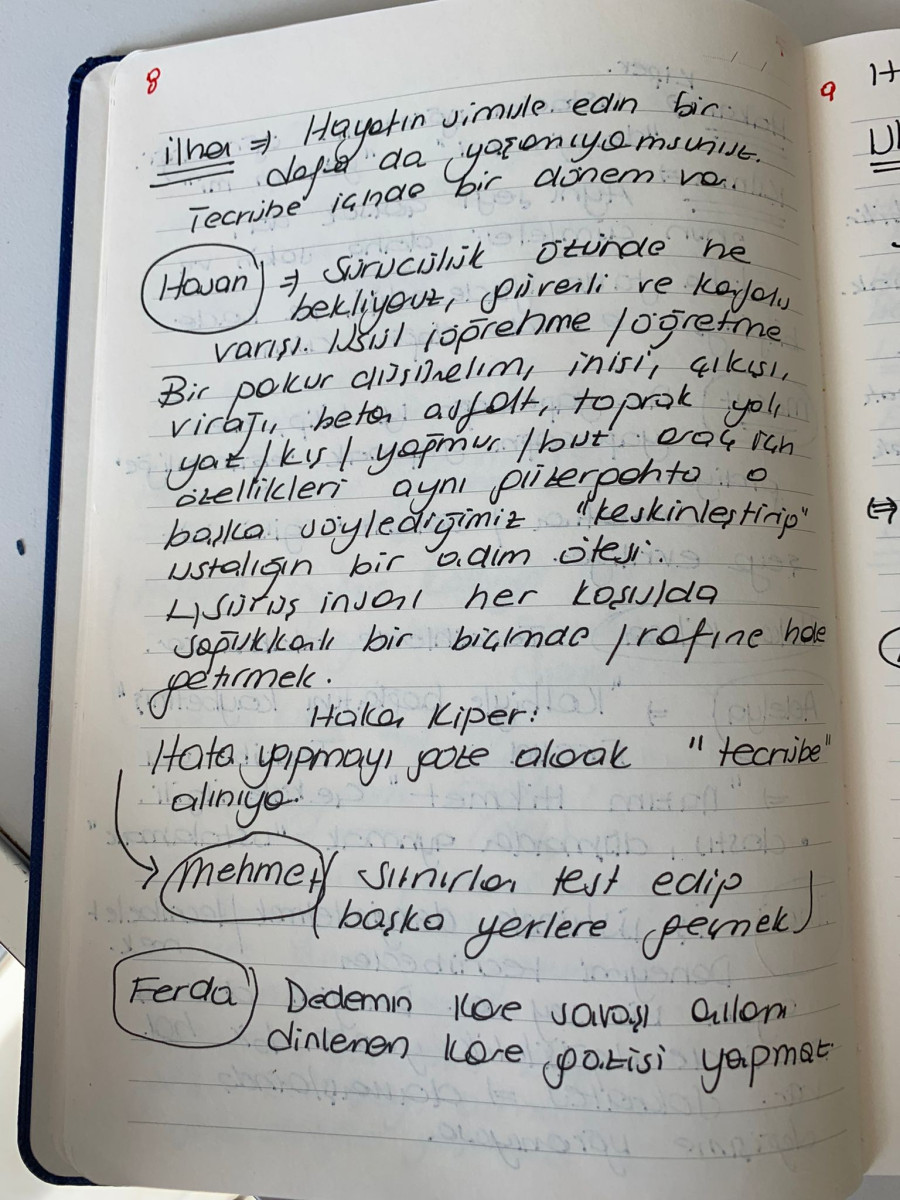 8
İlhan ⇒ Hayatın simule edin bir
defa da yaşamıyo musunuz.
Tecrübe içinde bir dönem va.
Hasan ⇒ Sürücülük özünde ne
bekliyouz, güvenli ve kargolu
varışı. Usül /öğrenme /öğretme
Bir pakur düşünelim, inişi, çıkışı,
virajı, beton asfalt, toprak yolı
yaz /kış / yağmur /buz araç için
özellikleri aynı güzergahta o
başka söylediğimiz "keskinleştirip"
ustalığın bir adım ötesi.
↳ sürüş insanı her koşulda
soğukkanlı bir biçimde / rafine hale
getirmek.
Haka Kiper:
Hata yapmayı göze alarak "tecrübe"
alınıyo.
→ Mehmet ( Sınırları test edip
başka yerlere geçmek )
Ferda Dedemin Kore savaşı anıları
dinlenen Kore gazisi yapmaz
9